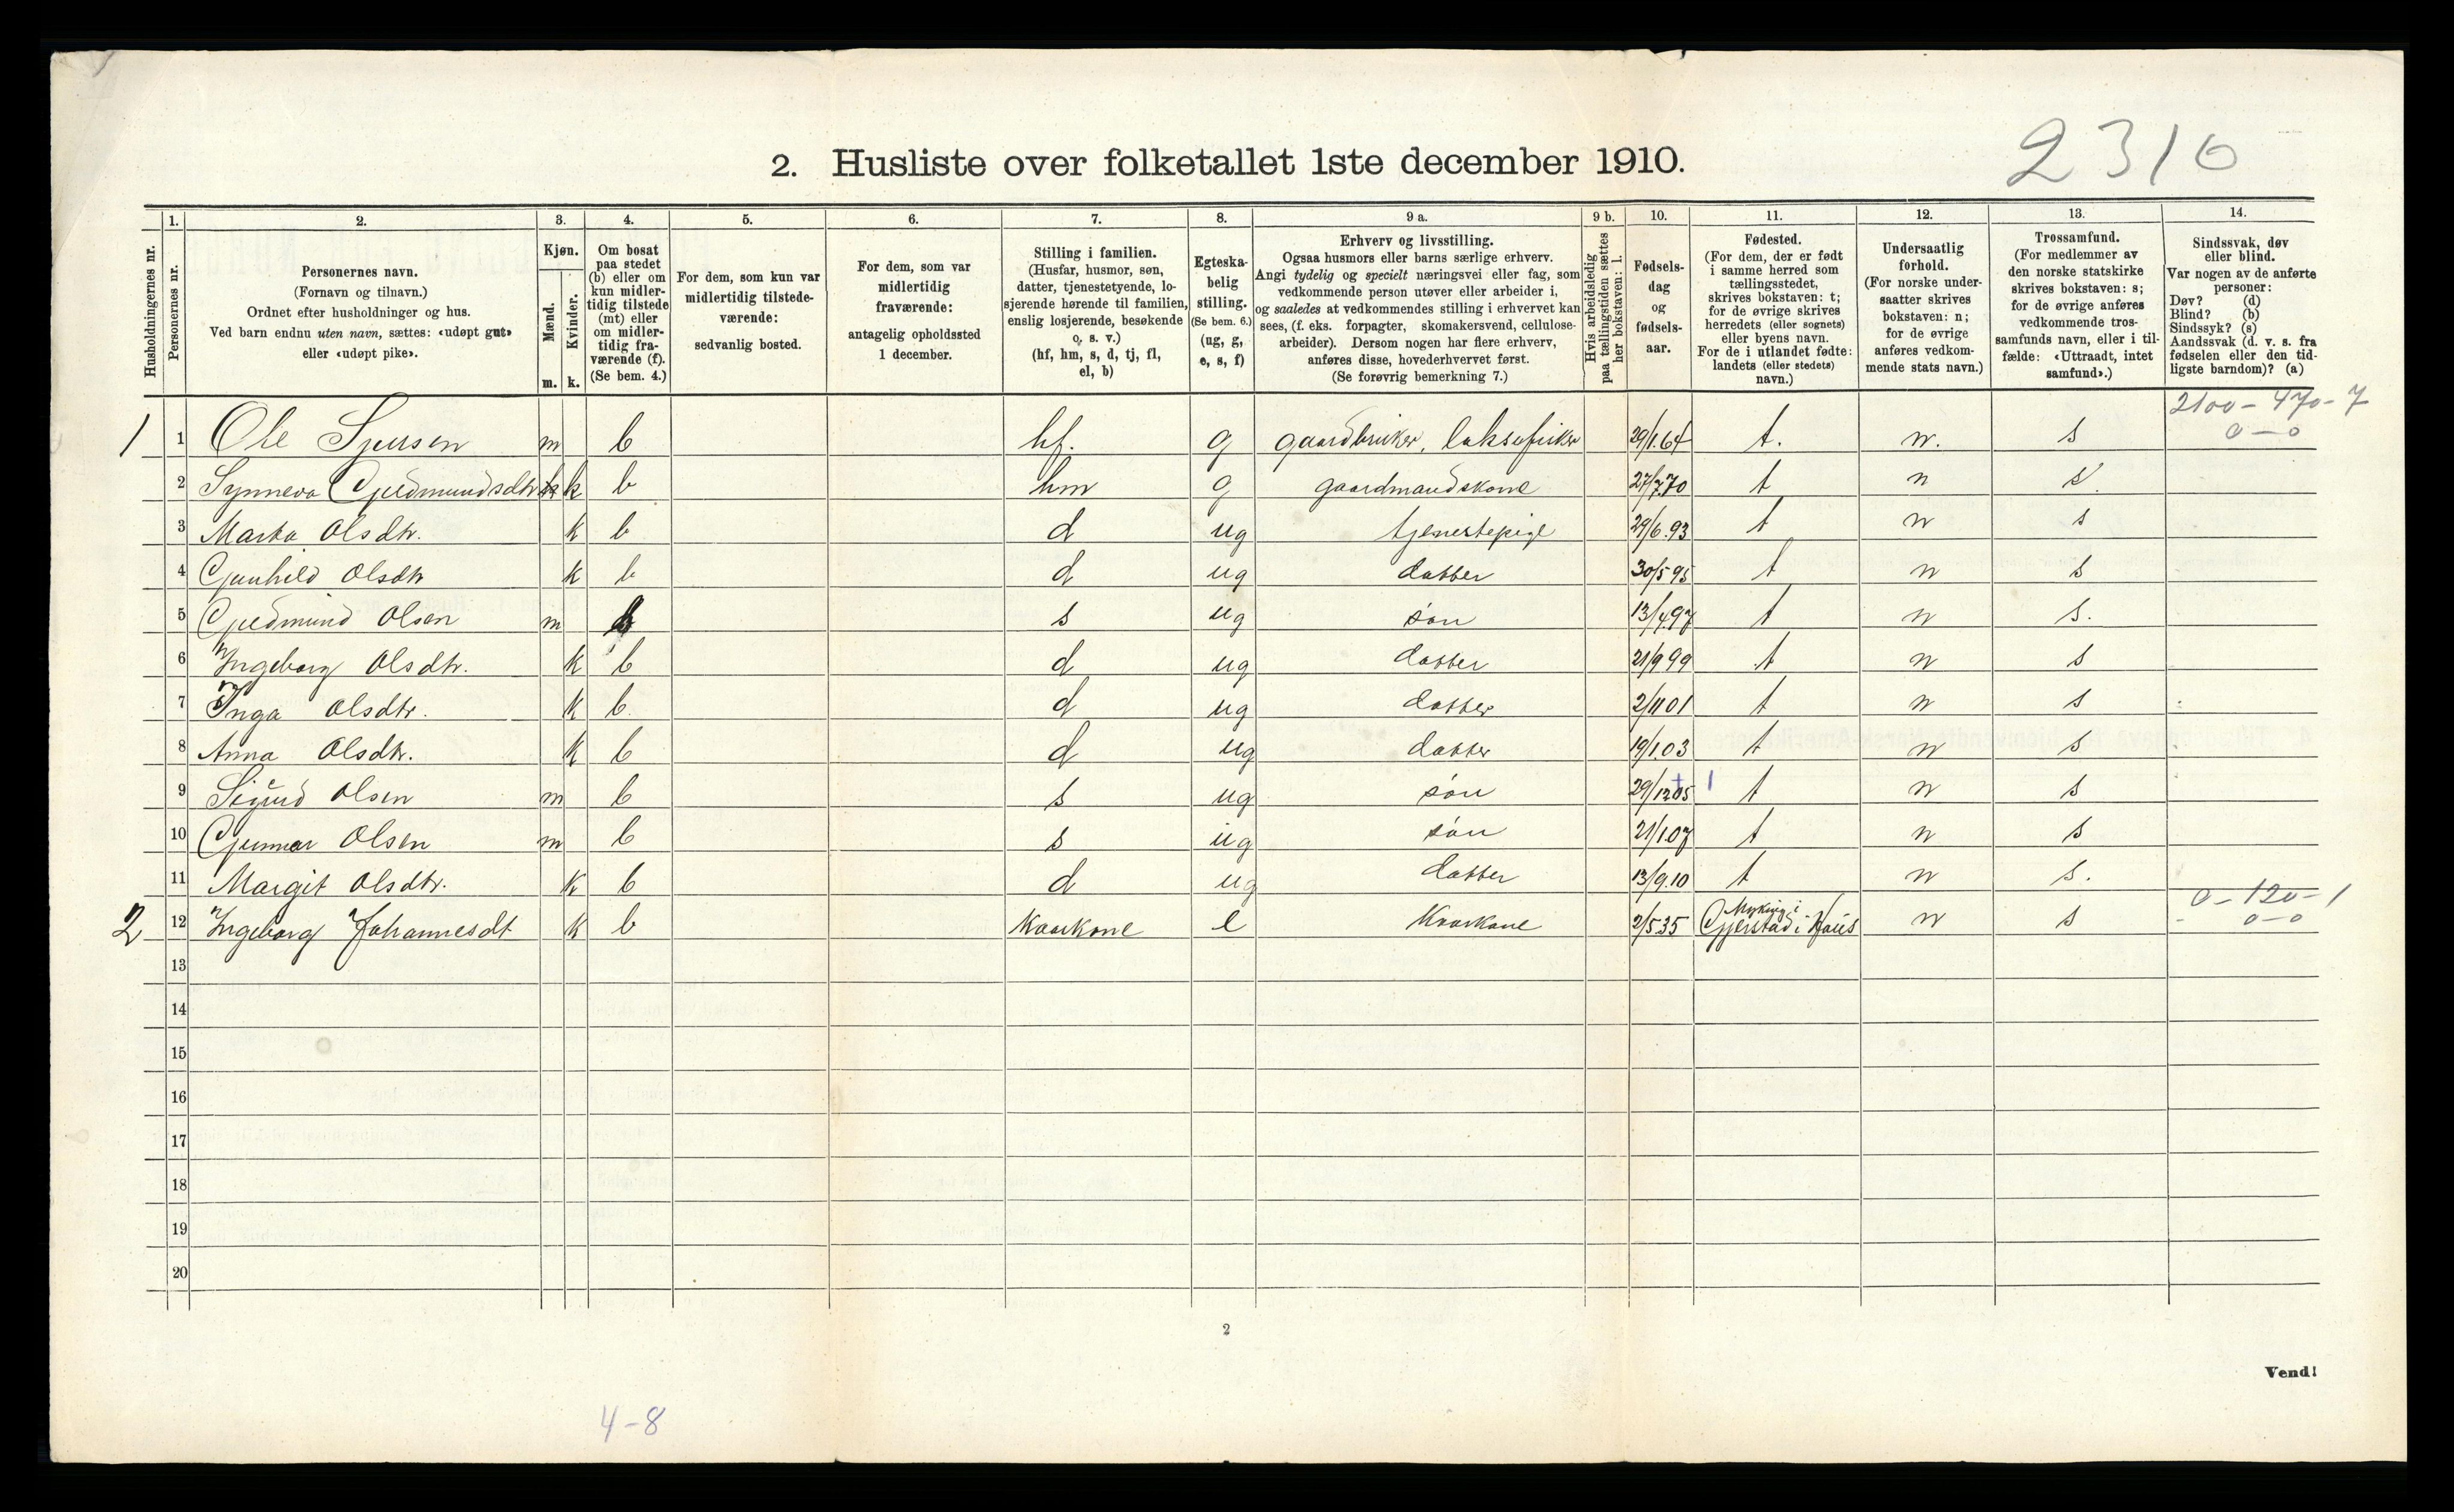 2310
2. Husliste over folketallet 1ste december 1910.
Husholdningernes nr.
1. Personernes nr.
2. Personernes navn. (Fornavn og tilnavn.) Ordnet efter husholdninger og hus. Ved barn endnu uten navn, sættes: «udøpt gut» eller «udøpt pike».
3. Kjøn. Mænd. m. Kvinder. k.
4. Om bosat paa stedet (b) eller om kun midlertidig tilstede (mt) eller om midlertidig fraværende (f). (Se bem. 4.)
5. For dem, som kun var midlertidig tilstedeværende: sedvanlig bosted.
6. For dem, som var midlertidig fraværende: antagelig opholdssted 1 december.
7. Stilling i familien. (Husfar, husmor, søn, datter, tjenestetyende, losjerende hørende til familien, enslig losjerende, besøkende o. s. v.) (hf, hm, s, d, tj, fl, el, b)
8. Egteskabelig stilling. (Se bem. 6.) (ug, g, e, s, f)
9 a. Erhverv og livsstilling. Ogsaa husmors eller barns særlige erhverv. Angi tydelig og specielt næringsvei eller fag, som vedkommende person utøver eller arbeider i, og saaledes at vedkommendes stilling i erhvervet kan sees, (f. eks. forpagter, skomakersvend, cellulosearbeider). Dersom nogen har flere erhverv, anføres disse, hovederhvervet først. (Se forøvrig bemerkning 7.)
9 b. Hvis arbeidsledig paa tællingstiden sættes her bokstaven: l.
10. Fødselsdag og fødselsaar.
11. Fødested. (For dem, der er født i samme herred som tællingsstedet, skrives bokstaven: t; for de øvrige skrives herredets (eller sognets) eller byens navn. For de i utlandet fødte: landets (eller stedets) navn.)
12. Undersaatlig forhold. (For norske undersaatter skrives bokstaven: n; for de øvrige anføres vedkommende stats navn.)
13. Trossamfund. (For medlemmer av den norske statskirke skrives bokstaven: s; for de øvrige anføres vedkommende trossamfunds navn, eller i tilfælde: «Uttraadt, intet samfund».)
14. Sindssvak, døv eller blind. Var nogen av de anførte personer: Døv? (d) Blind? (b) Sindssyk? (s) Aandssvak (d. v. s. fra fødselen eller den tidligste barndom)? (a)
2100 - 470 - 7
0 - 0
1 1 Ole Sjursen m b hf. g gaardbruker, laksefisker 29/1.64 t. n. s
2 Synneva Gudmundsdtr k b hm g gaardmandskone 27/7.70 t n s
3 Marta Olsdtr. k b d ug tjenestepige 29/6.93 t n s
4 Gunhild Olsdtr k b d ug datter 30/5 95 t n s
5 Gudmund Olsen m b s ug søn 13/4.97 t n s.
6 Ingeborg Olsdtr. k b d ug datter 21/9 99 t n s
7 Inga Olsdtr. k b. d ug datter 2/11 01 t n s
8 Anna Olsdtr. k b d ug datter 19/1.03 t n s
9 Sigurd Olsen m b s ug søn 29/12 05 t n s
10 Gunnar Olsen m b s ug søn 21/1.07 t n s
11 Margit Olsdtr. k b d ug datter 13/9.10 t n s.
0 - 120 - 1
0 - 0
2 12 Ingeborg Johannesdt k b Kaarkone e Kaarkone 2/5 35 Myking i Gjerstad i Haus n s
13
14
15
16
17
18
19
20
2
Vend!
4-8